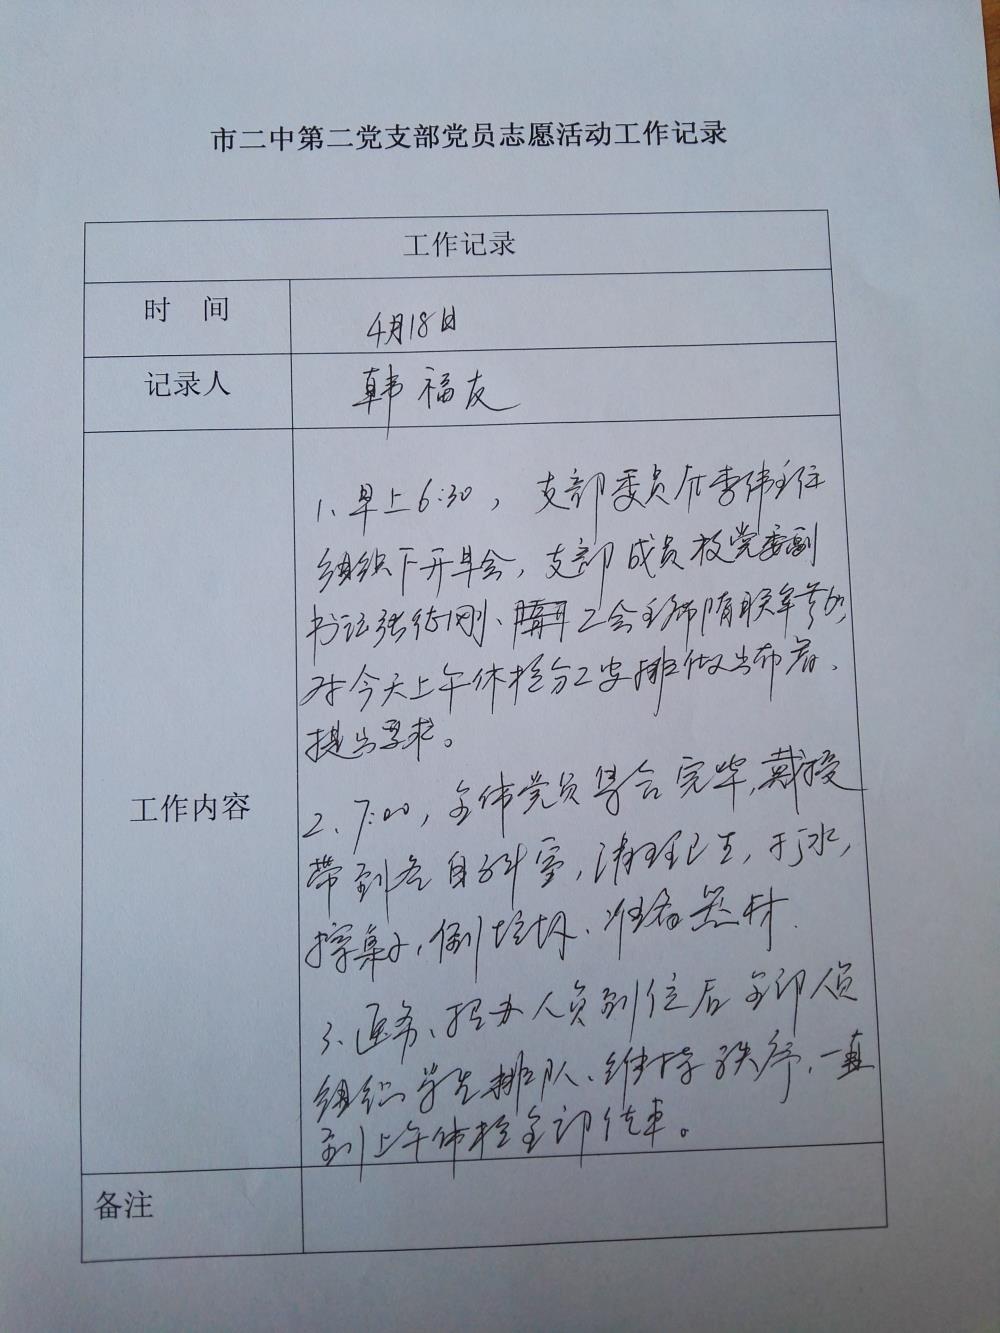 市二中第二党支部党员志愿活动工作记录
工作记录
时 间
4月18日
记录人
韩福友
工作内容
1、早上6:30，支部委员 李伟主任
组织下开早会，支部成员校党委副
书记张 刚、工会主席隋联军等同
对今天上午体检分工安排做出布署、
提出要求。
2、7:00，全体党员集合完毕，戴授
带到各自科室，清理卫生，打水，
擦桌子，倒垃圾、准备器材.
3、医务、招办人员到位后全部人员
组织学生排队、维持秩序，一直
到上午体检全部结束。
备注